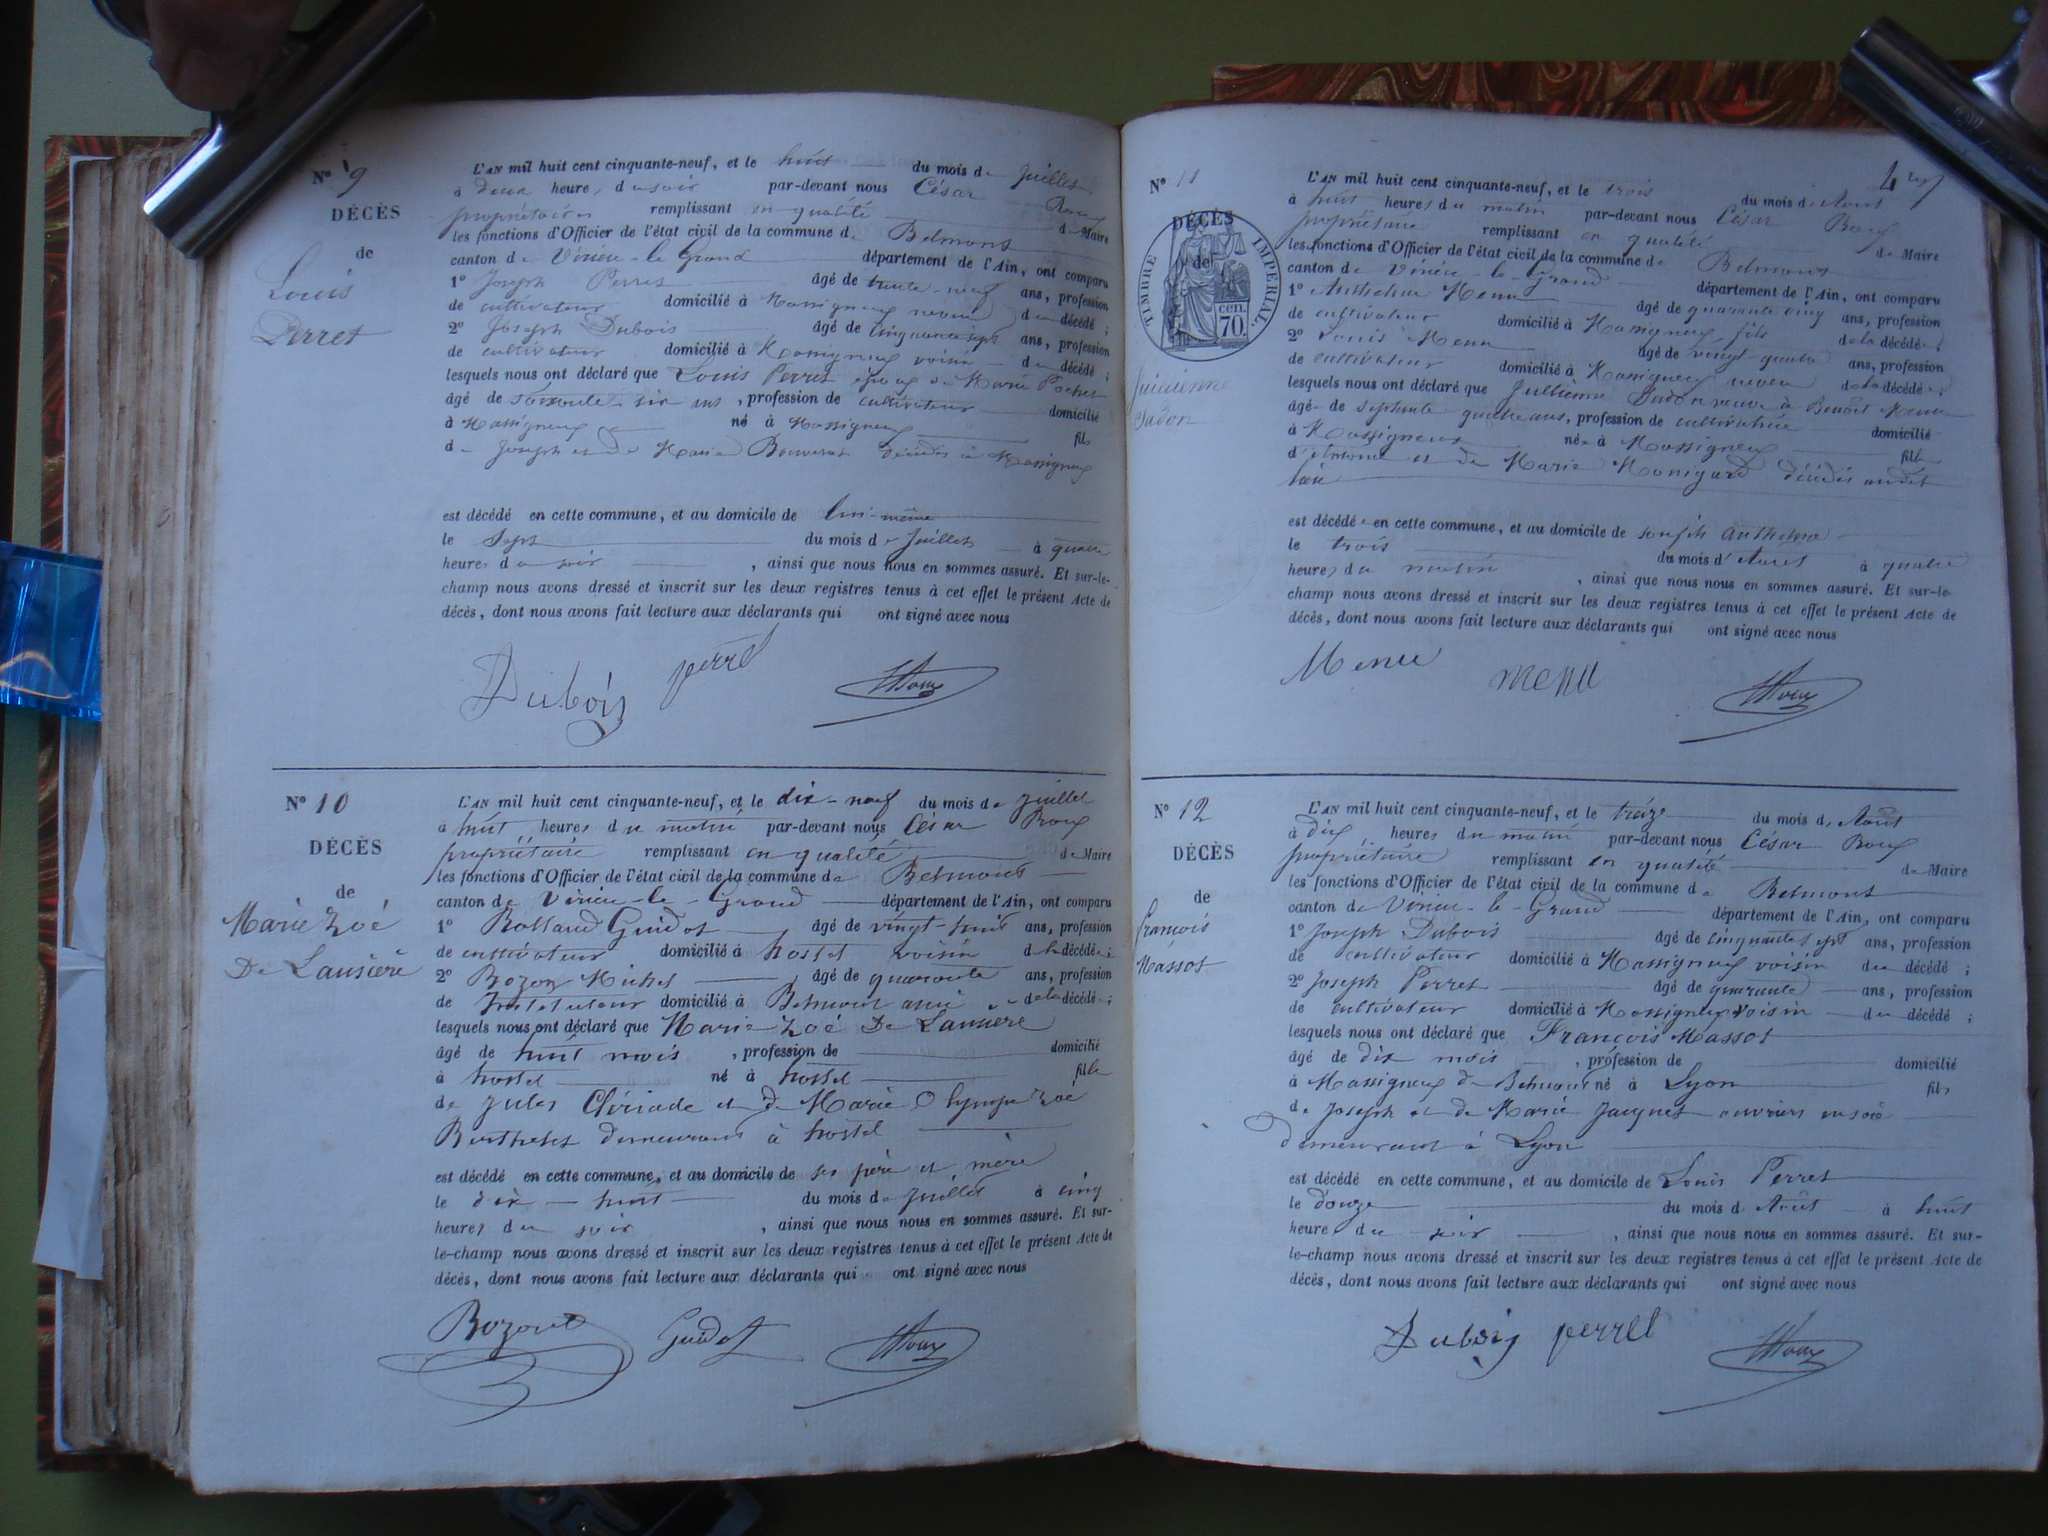 N° 9
DÉCÈS
de
Louis
Perret
L'AN mil huit cent cinquante-neuf, et le huit du mois de Juillet
à deux heures du soir par-devant nous César Roux
propriétaire remplissant en qualité de Maire
les fonctions d'Officier de l'état civil de la commune de Belmont
canton de Virieu-le-Grand département de l'Ain, ont comparu
1° Joseph Perret âgé de trente-neuf ans, profession
de cultivateur domicilié à Massigneux neveu du décédé ;
2° Joseph Dubois âgé de cinquante sept ans, profession
de cultivateur domicilié à Massigneux voisin du décédé ;
lesquels nous ont déclaré que Louis Perret époux de Marie Pochet
âgé de soixante six ans, profession de cultivateur domicilié
à Massigneux né à Massigneux fils
de Joseph et de Marie décédés à Massigneux
est décédé en cette commune, et au domicile de lui-même
le Sept du mois de Juillet à quatre
heures du soir, ainsi que nous nous en sommes assuré. Et sur-le-
champ nous avons dressé et inscrit sur les deux registres tenus à cet effet le présent Acte de
décès, dont nous avons fait lecture aux déclarants qui ont signé avec nous
Dubois perret Roux
N° 10
DÉCÈS
de
Marie Zoé
De Lausière
L'AN mil huit cent cinquante-neuf, et le dix-neuf du mois de Juillet
à huit heures du matin par-devant nous César Roux
propriétaire remplissant en qualité de Maire
les fonctions d'Officier de l'état civil de la commune de Belmont
canton de Virieu-le-Grand département de l'Ain, ont comparu
1° Rolland Guidot âgé de vingt-huit ans, profession
de cultivateur domicilié à hostel voisin de la décédée ;
2° Bozon Michel âgé de quarante ans, profession
de Instituteur domicilié à Belmont ami de la décédée ;
lesquels nous ont déclaré que Marie Zoé De Lausière
âgé de huit mois, profession de domicilié
à hostel né à hostel fille
de Jules Clériade et de Marie Olympe Zoé
Berthelet demeurant à hostel
est décédé en cette commune, et au domicile de ses père et mère
le dix-huit du mois de Juillet à cinq
heures du soir, ainsi que nous nous en sommes assuré. Et sur-
le-champ nous avons dressé et inscrit sur les deux registres tenus à cet effet le présent Acte de
décès, dont nous avons fait lecture aux déclarants qui ont signé avec nous
Guidot Roux
N° 11
DÉCÈS
de
TIMBRE IMPÉRIAL
70 cen.
Julienne
Sudon
L'AN mil huit cent cinquante-neuf, et le trois du mois d'Aout
à huit heures du matin par-devant nous César Roux
propriétaire remplissant en qualité de Maire
les fonctions d'Officier de l'état civil de la commune de Belmont
canton de Virieu-le-Grand département de l'Ain, ont comparu
1° Anthelme Menu âgé de quarante cinq ans, profession
de cultivateur domicilié à Massigneux fils de la décédée ;
2° Louis Menu âgé de vingt quatre ans, profession
de cultivateur domicilié à Massigneux neveu de la décédée ;
lesquels nous ont déclaré que Jullienne Sudon veuve à Benoît Menu
âgé de septante quatre ans, profession de cultivatrice domicilié
à Massigneux née à Massigneux fille
et de Marie décédés audit
lieu
est décédée en cette commune, et au domicile de Anthelme
le trois du mois d'Aout à quatre
heures du matin, ainsi que nous nous en sommes assuré. Et sur-le-
champ nous avons dressé et inscrit sur les deux registres tenus à cet effet le présent Acte de
décès, dont nous avons fait lecture aux déclarants qui ont signé avec nous
Menu menu Roux
N° 12
DÉCÈS
de
François
Massot
L'AN mil huit cent cinquante-neuf, et le treize du mois d'Août
à dix heures du matin par-devant nous César Roux
propriétaire remplissant en qualité de Maire
les fonctions d'Officier de l'état civil de la commune de Belmont
canton de Virieu-le-Grand département de l'Ain, ont comparu
1° Joseph Dubois âgé de cinquante sept ans, profession
de cultivateur domicilié à Massigneux voisin du décédé ;
2° Joseph Perret âgé de quarante ans, profession
de cultivateur domicilié à Massigneux voisin du décédé ;
lesquels nous ont déclaré que François Massot
âgé de dix mois, profession de domicilié
à Massigneux de Belmont né à Lyon fils
de Joseph et de Marie Jacquet ouvriers en soie
demeurant à Lyon
est décédé en cette commune, et au domicile de Louis Perret
le douze du mois d'Août à huit
heure du soir, ainsi que nous nous en sommes assuré. Et sur-
le-champ nous avons dressé et inscrit sur les deux registres tenus à cet effet le présent Acte de
décès, dont nous avons fait lecture aux déclarants qui ont signé avec nous
Dubois perret Roux